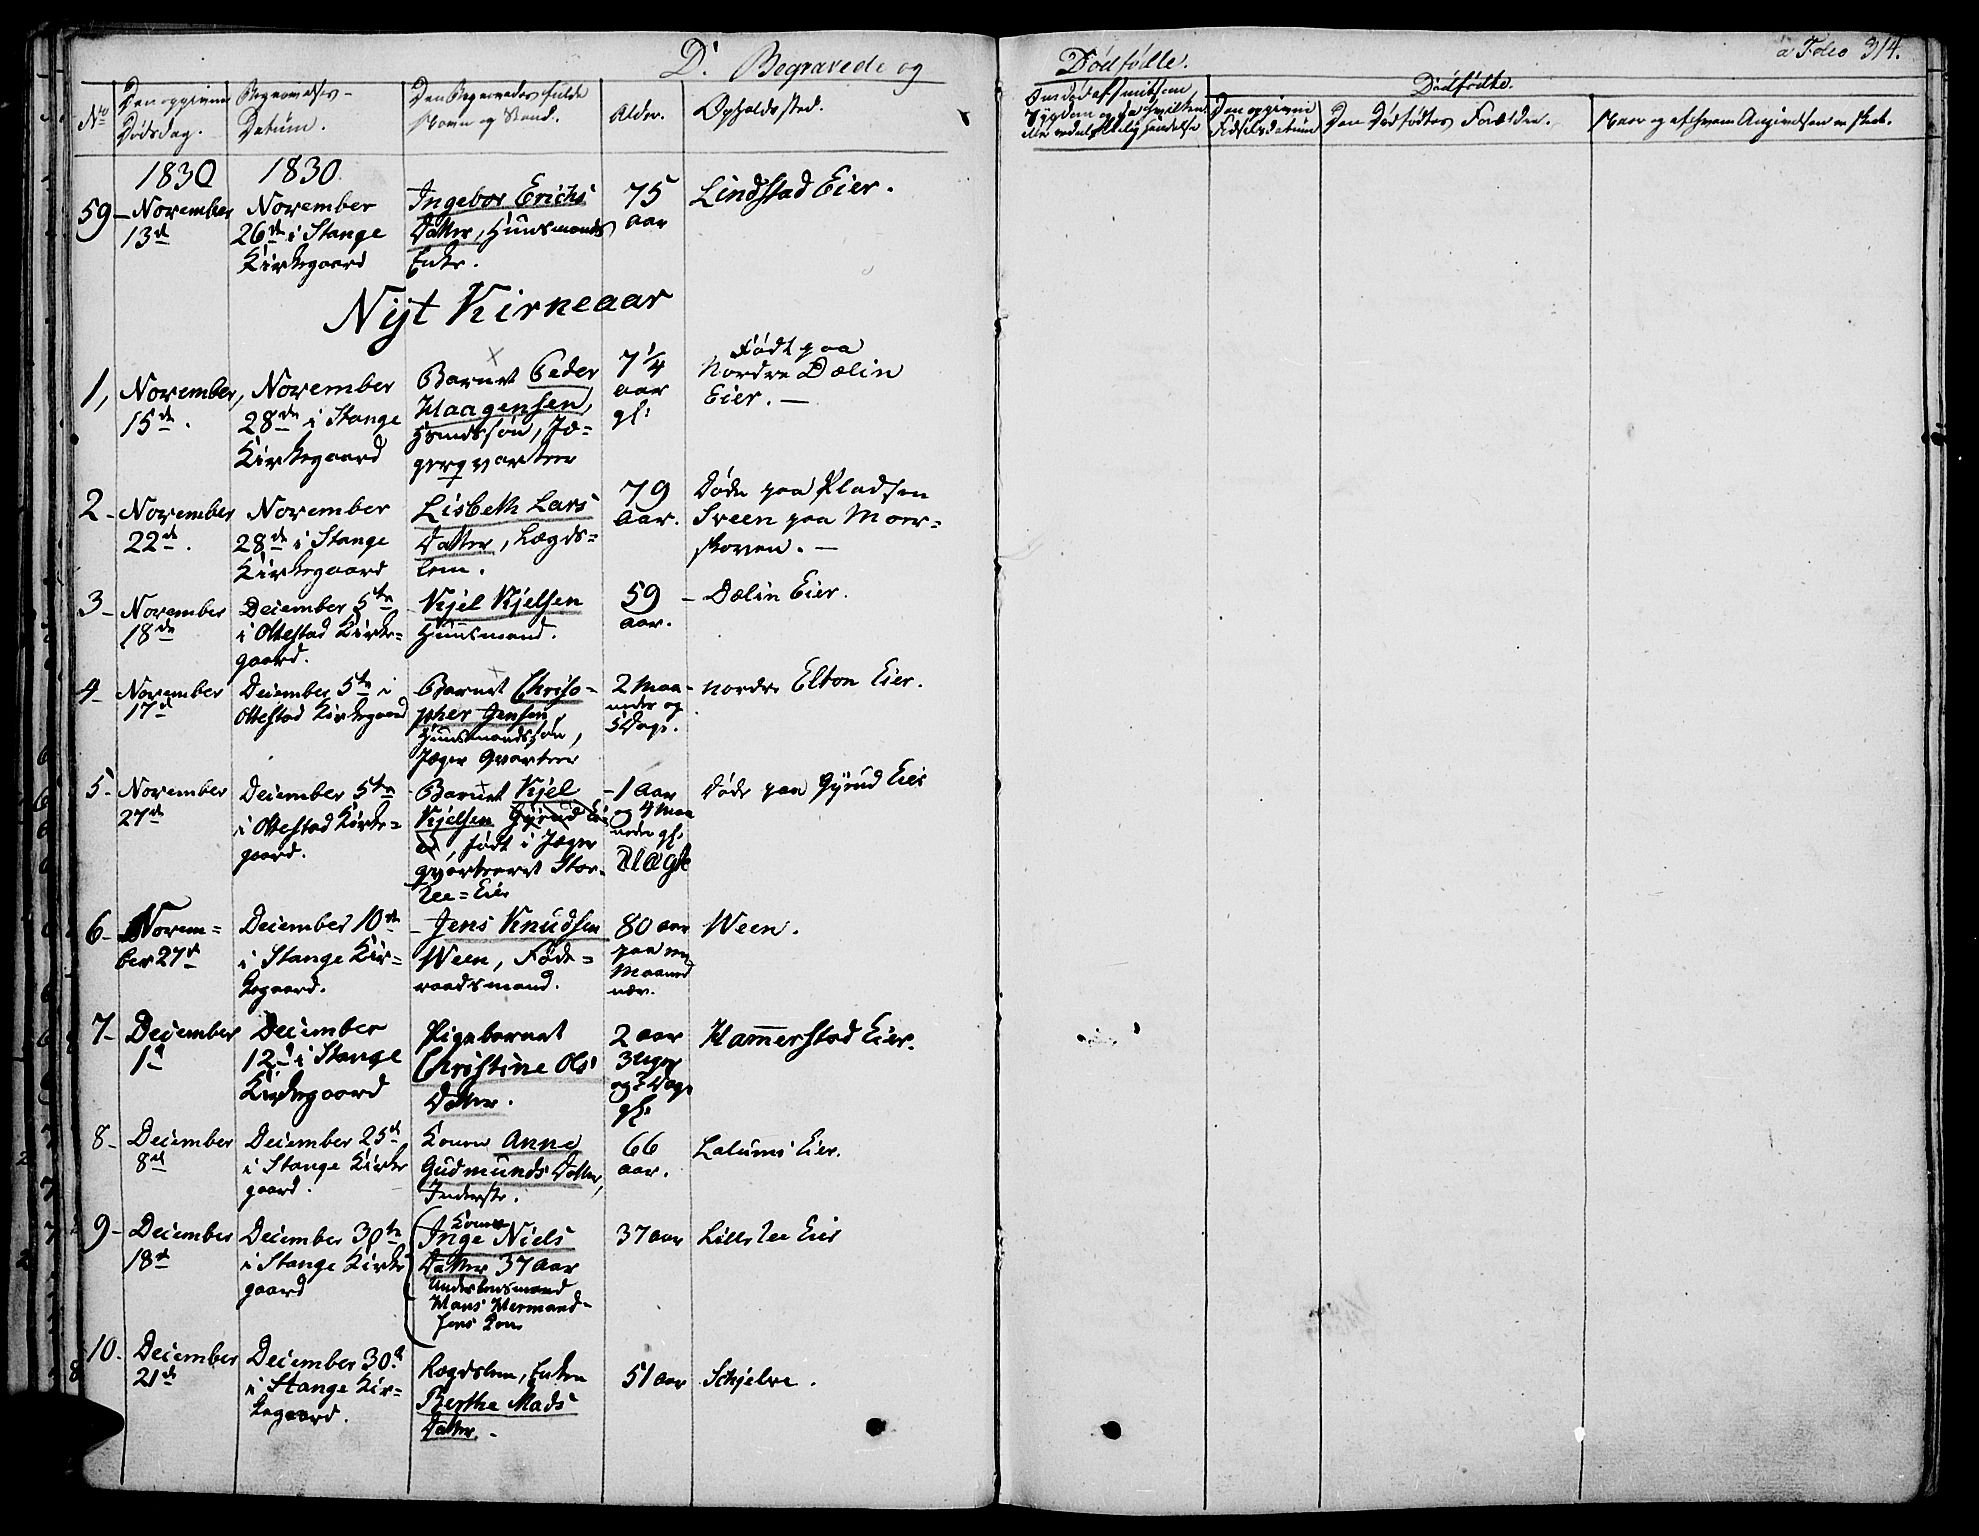 D. Begravede og
Dødfødte.
a Folio 314.
No
Den opgivne Dødsdag.
Begravelses-Datum.
Den Begravedes fulde Navn og Stand.
Alder.
Opholdssted.
Om død af smitsom Sygdom og da hvilken
Den opgivne Fødselsdatum
Dødfødte.
Den Dødfødtes Forældre.
Naar og af hvem Angivelsen er skeet.
1830
1830.
59 - November 13de
November 26de i Stange Kirkegaard
Ingebor Erichs Datter, Huusmands Enke.
75 aar
Lindstad Eier.
Nyt Kirkeaar
1, November, 15de.
November 28de i Stange Kirkegaard
Barnet Peder Haagensen, Huusmdssøn, Jægerqvarteer
7 1/4 aar gl:
Født paa Nordre Dælin Eier. -
2 - November 22de.
November 28de i Stange Kirkegaard
Lisbeth Lars Datter, Lægdslem.
79 aar.
Døde paa Pladsen Sveen paa Moerskoven. -
3 - November 18de
December 5te i Ottestad Kirkegaard.
Kjel Kjelsen Huusmand.
59 aar.
- Dælin Eier.
4 - November 17de
December 5te i Ottestad Kirkegaard
Barnet Christopher Jensen, Huusmandssøn, Jæger Qvarteer
2 Maaneder og 5 Dage.
- nordre Elton Eier.
5 - November 27de
December 5te i Ottestad Kirkegaard.
Barnet Kjel Kjelsen Gyrud Eie, født i Jægerqvarteret Store Ree=Eie
- 1 Aar og 4 Maaneder gl. Uægte
Døde paa Gyrud Eie
6 - November 27de
December 10de i Stange Kirkegaard.
- Jens Knudsen Ween, Føderaadsmand.
80 aar paa en Maaned nær.
Ween.
7 - December 1de
December 12de i Stange Kirkegaard
Pigebarnet Christine Ols Datter.
2 aar 3 Uger og 2 Dage gl.
Hammerstad Eier.
8 - December 8de
December 25de i Stange Kirkegaard.
Konen Anne Gudmunds Datter, Inderste.
66 aar.
Lalumi Eier.
9 - December 18de
December 30te i Stange Kirkegaard
Konen Inge Niels Datter 37 Aar Underofficersmand Hans Hermandsens Kone
37 aar
Lille Ree Eie
10. December 21de
December 30de i Stange Kirkegaard.
Lægdslem, Enken Berthe Mads Datter. -
51 aar
Schjelve.